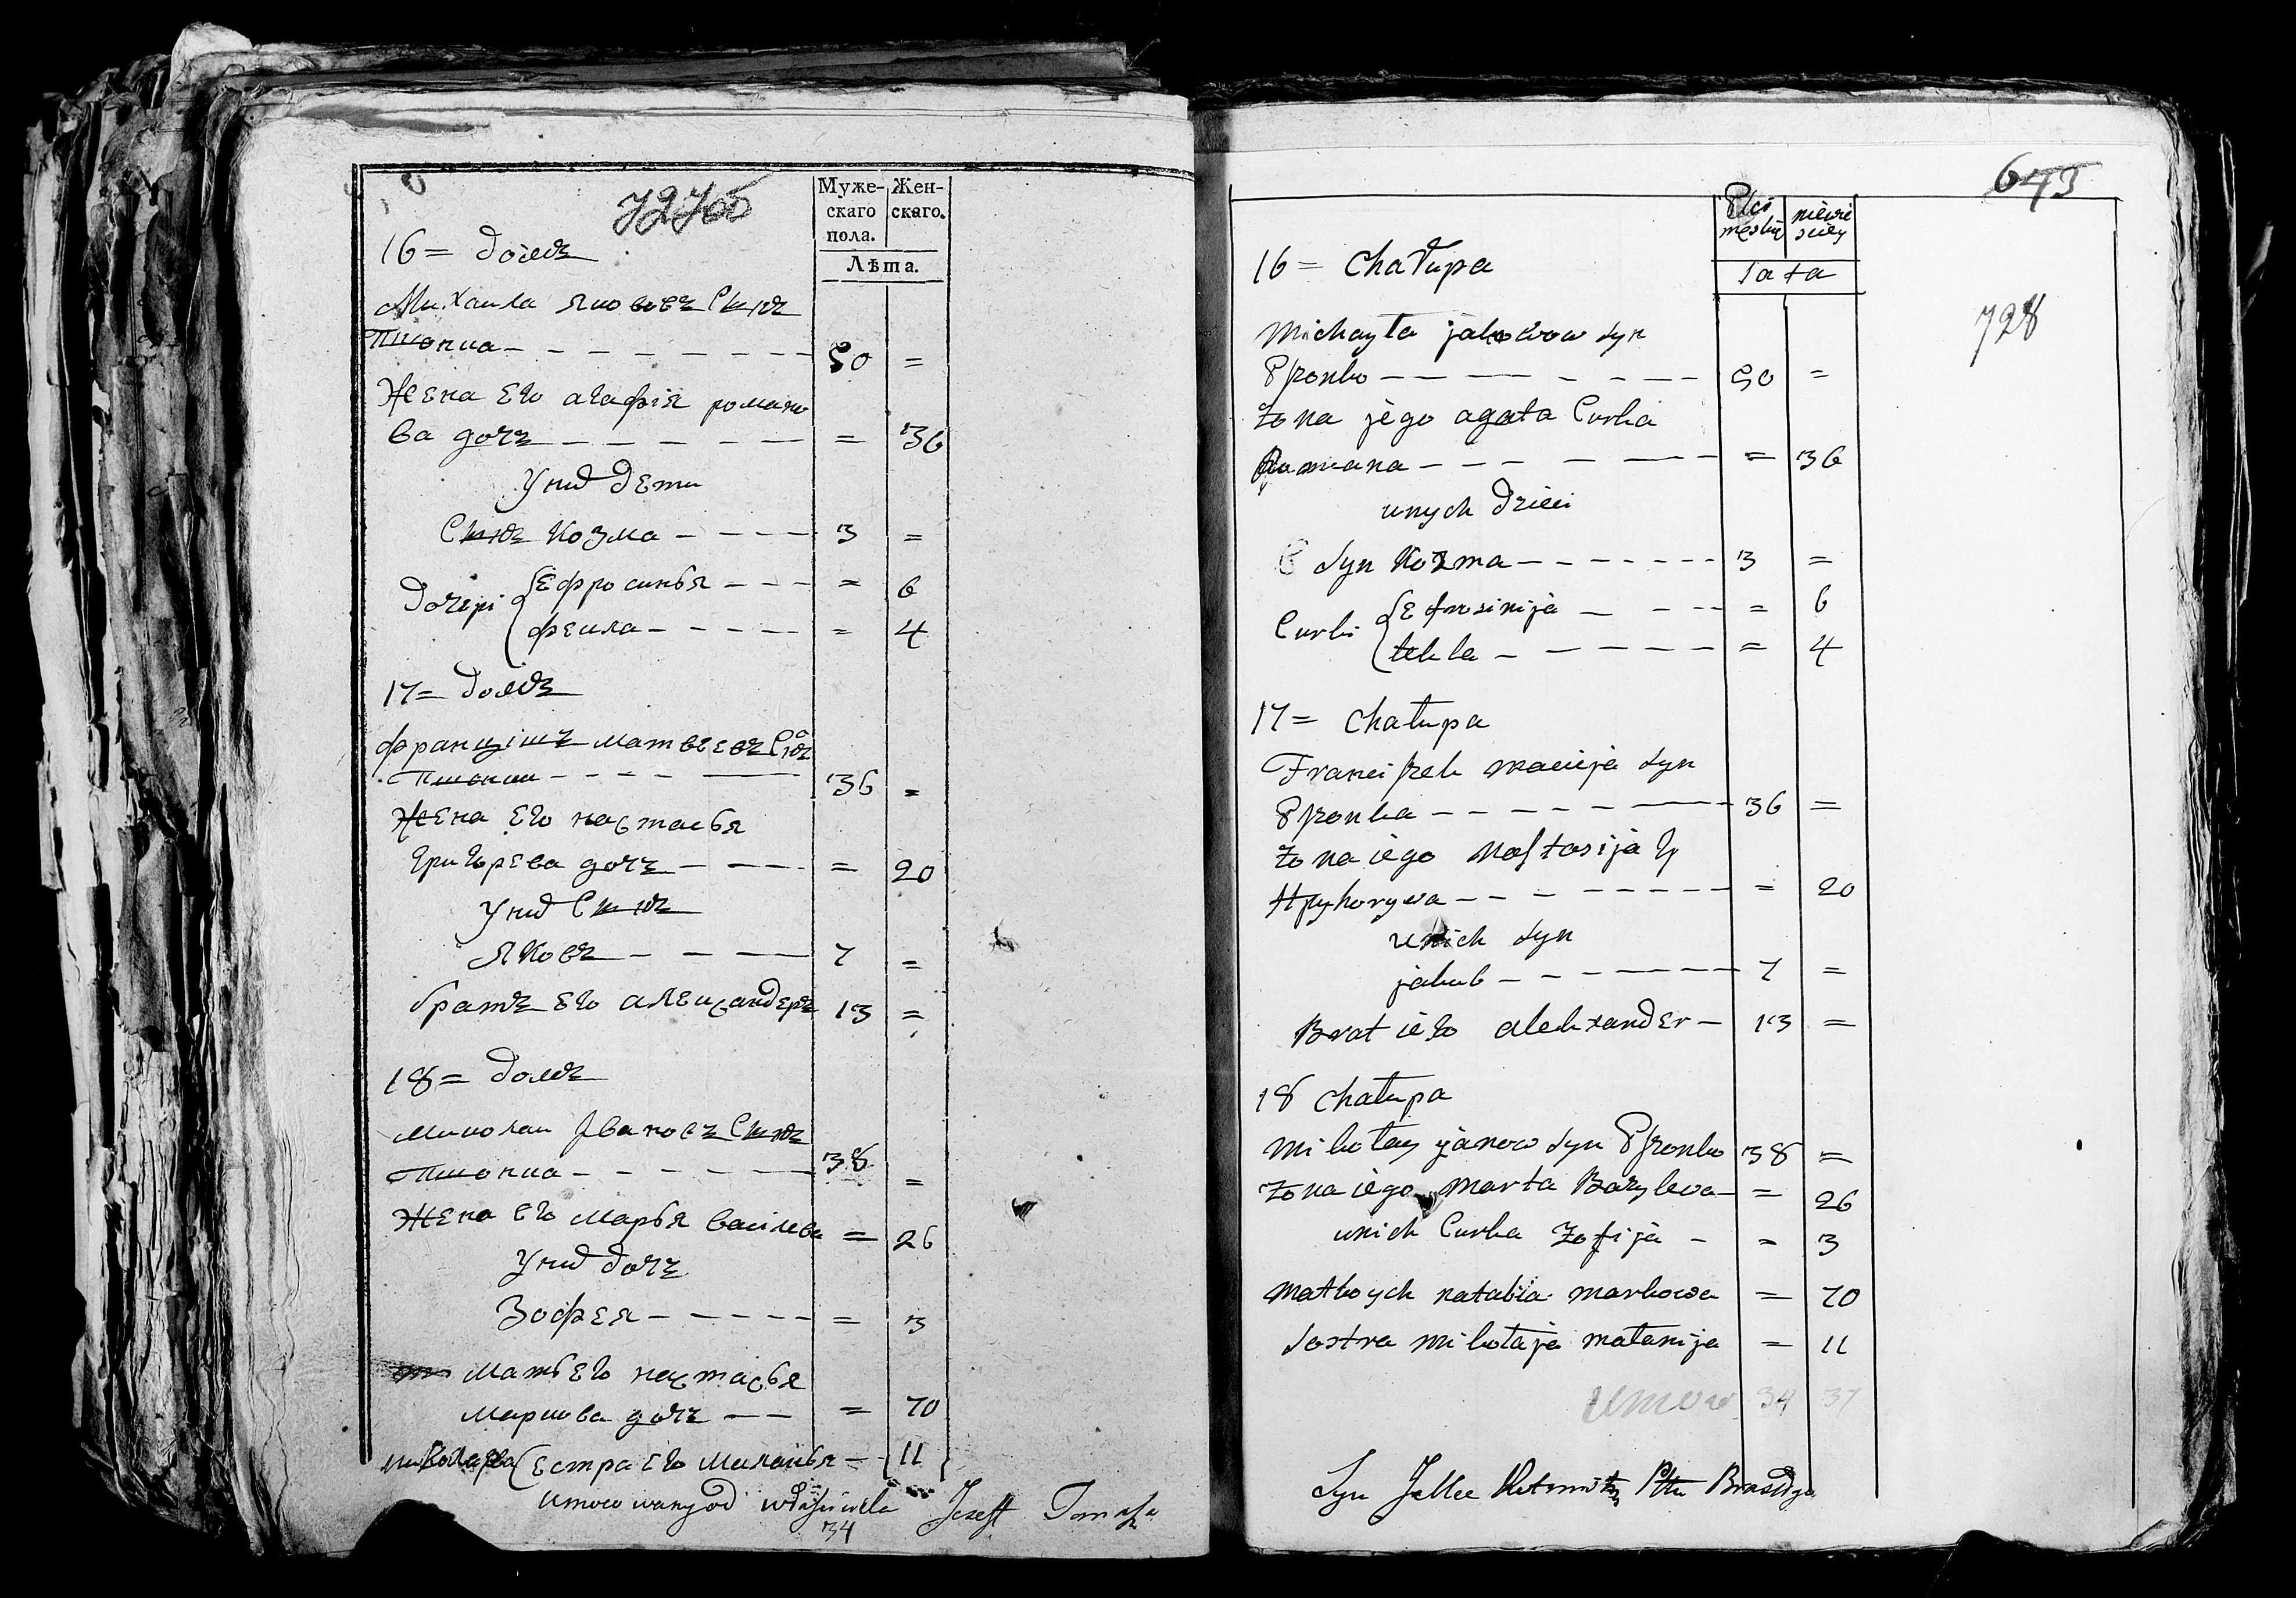 727об
Муже-
скаго
пола.
Жен-
скаго.
Лѣта.
16 = домъ
Михаила яковъ Сынъ
Пшонка — 50 =
Жена Его агафiя романо
ва дочъ — = 36
У них дети
Сынъ Козма — 3 =
Дочерi { Ефросинья — = 6
феkла — = 4
17 = домъ
францiшъ матвеевъ Снъ
Пшонки — 36 =
Жена Его настасья
григорева дочъ — = 20
У них Сынъ
Яковъ — 7 =
братъ Его александеръ 13 =
18 = домъ
Миколаи Ивановъ Сынъ
Пшонка — 38 =
Жена Его Марья Василева = 26
У них дочъ
Зофея — = 3
Мать Его настасья
Маркова дочъ — = 70
Сестра Его Миланья — 11
34
Jozeff
643
728
Płci
męskiej
niewie
sciey
Lata
16 = Chałupa
Michayła jakowow Syn
Pszonko — 50 =
żona jego agata Curka
Romana — = 36
unych dzieci
Syn Kozma — 3 =
Curki { Efrosinija — = 6
tekla — = 4
17 = Chałupa
Franciszek macieja Syn
Pszonka — 36 =
żona iego Nastasija
= 20
unich Syn
jakub — 7 =
Brat iego alekxander — 13 =
18 Chałupa
Mikołay janow Syn Pszonko 38 =
żona iego Marta Bazylewa — = 26
unich Curka Zofija — = 3
Matka ych natalia markowa = 70
Sostra Mikołaja matanija = 11
34 37